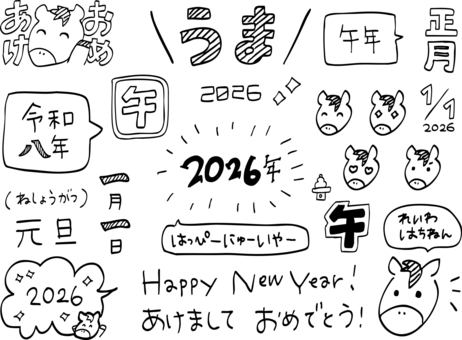 あけ
おめ
うま
午年
正月
令和
八年
午
2026
1/1
2026
2026年
(ねしょうがつ)
元旦
一月
一日
はっぴーにゅーいやー
午
れいわ
はちねん
2026
Happy New Year!
あけまして おめでとう!